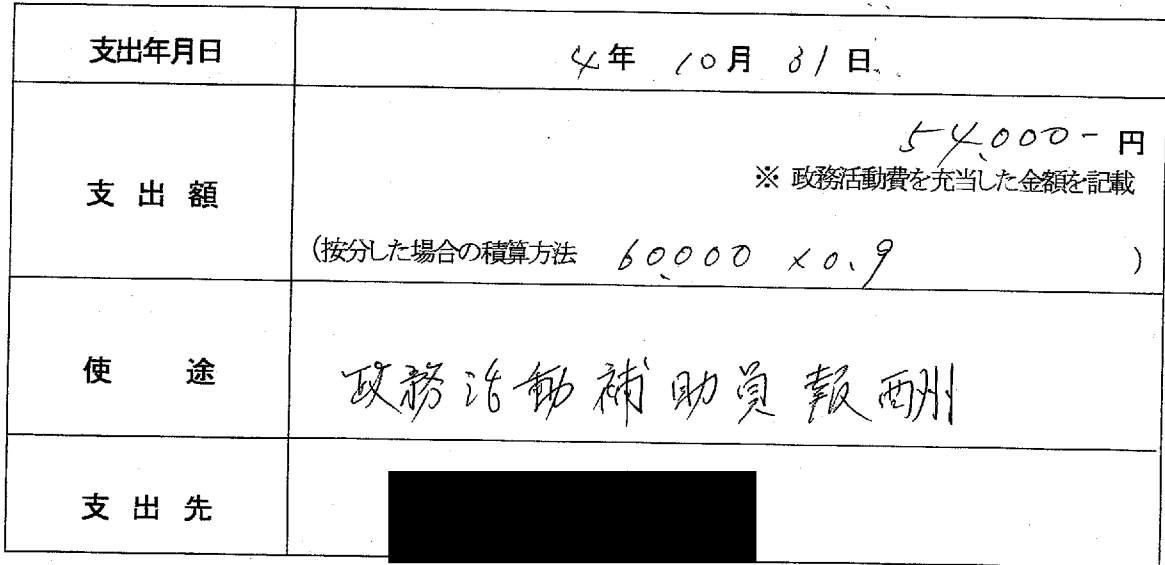 支出年月日 4年 10月 31日
支出額 54,000-円
※ 政務活動費を充当した金額を記載
(按分した場合の積算方法 60,000 × 0.9 )
使途 政務活動補助員報酬
支出先